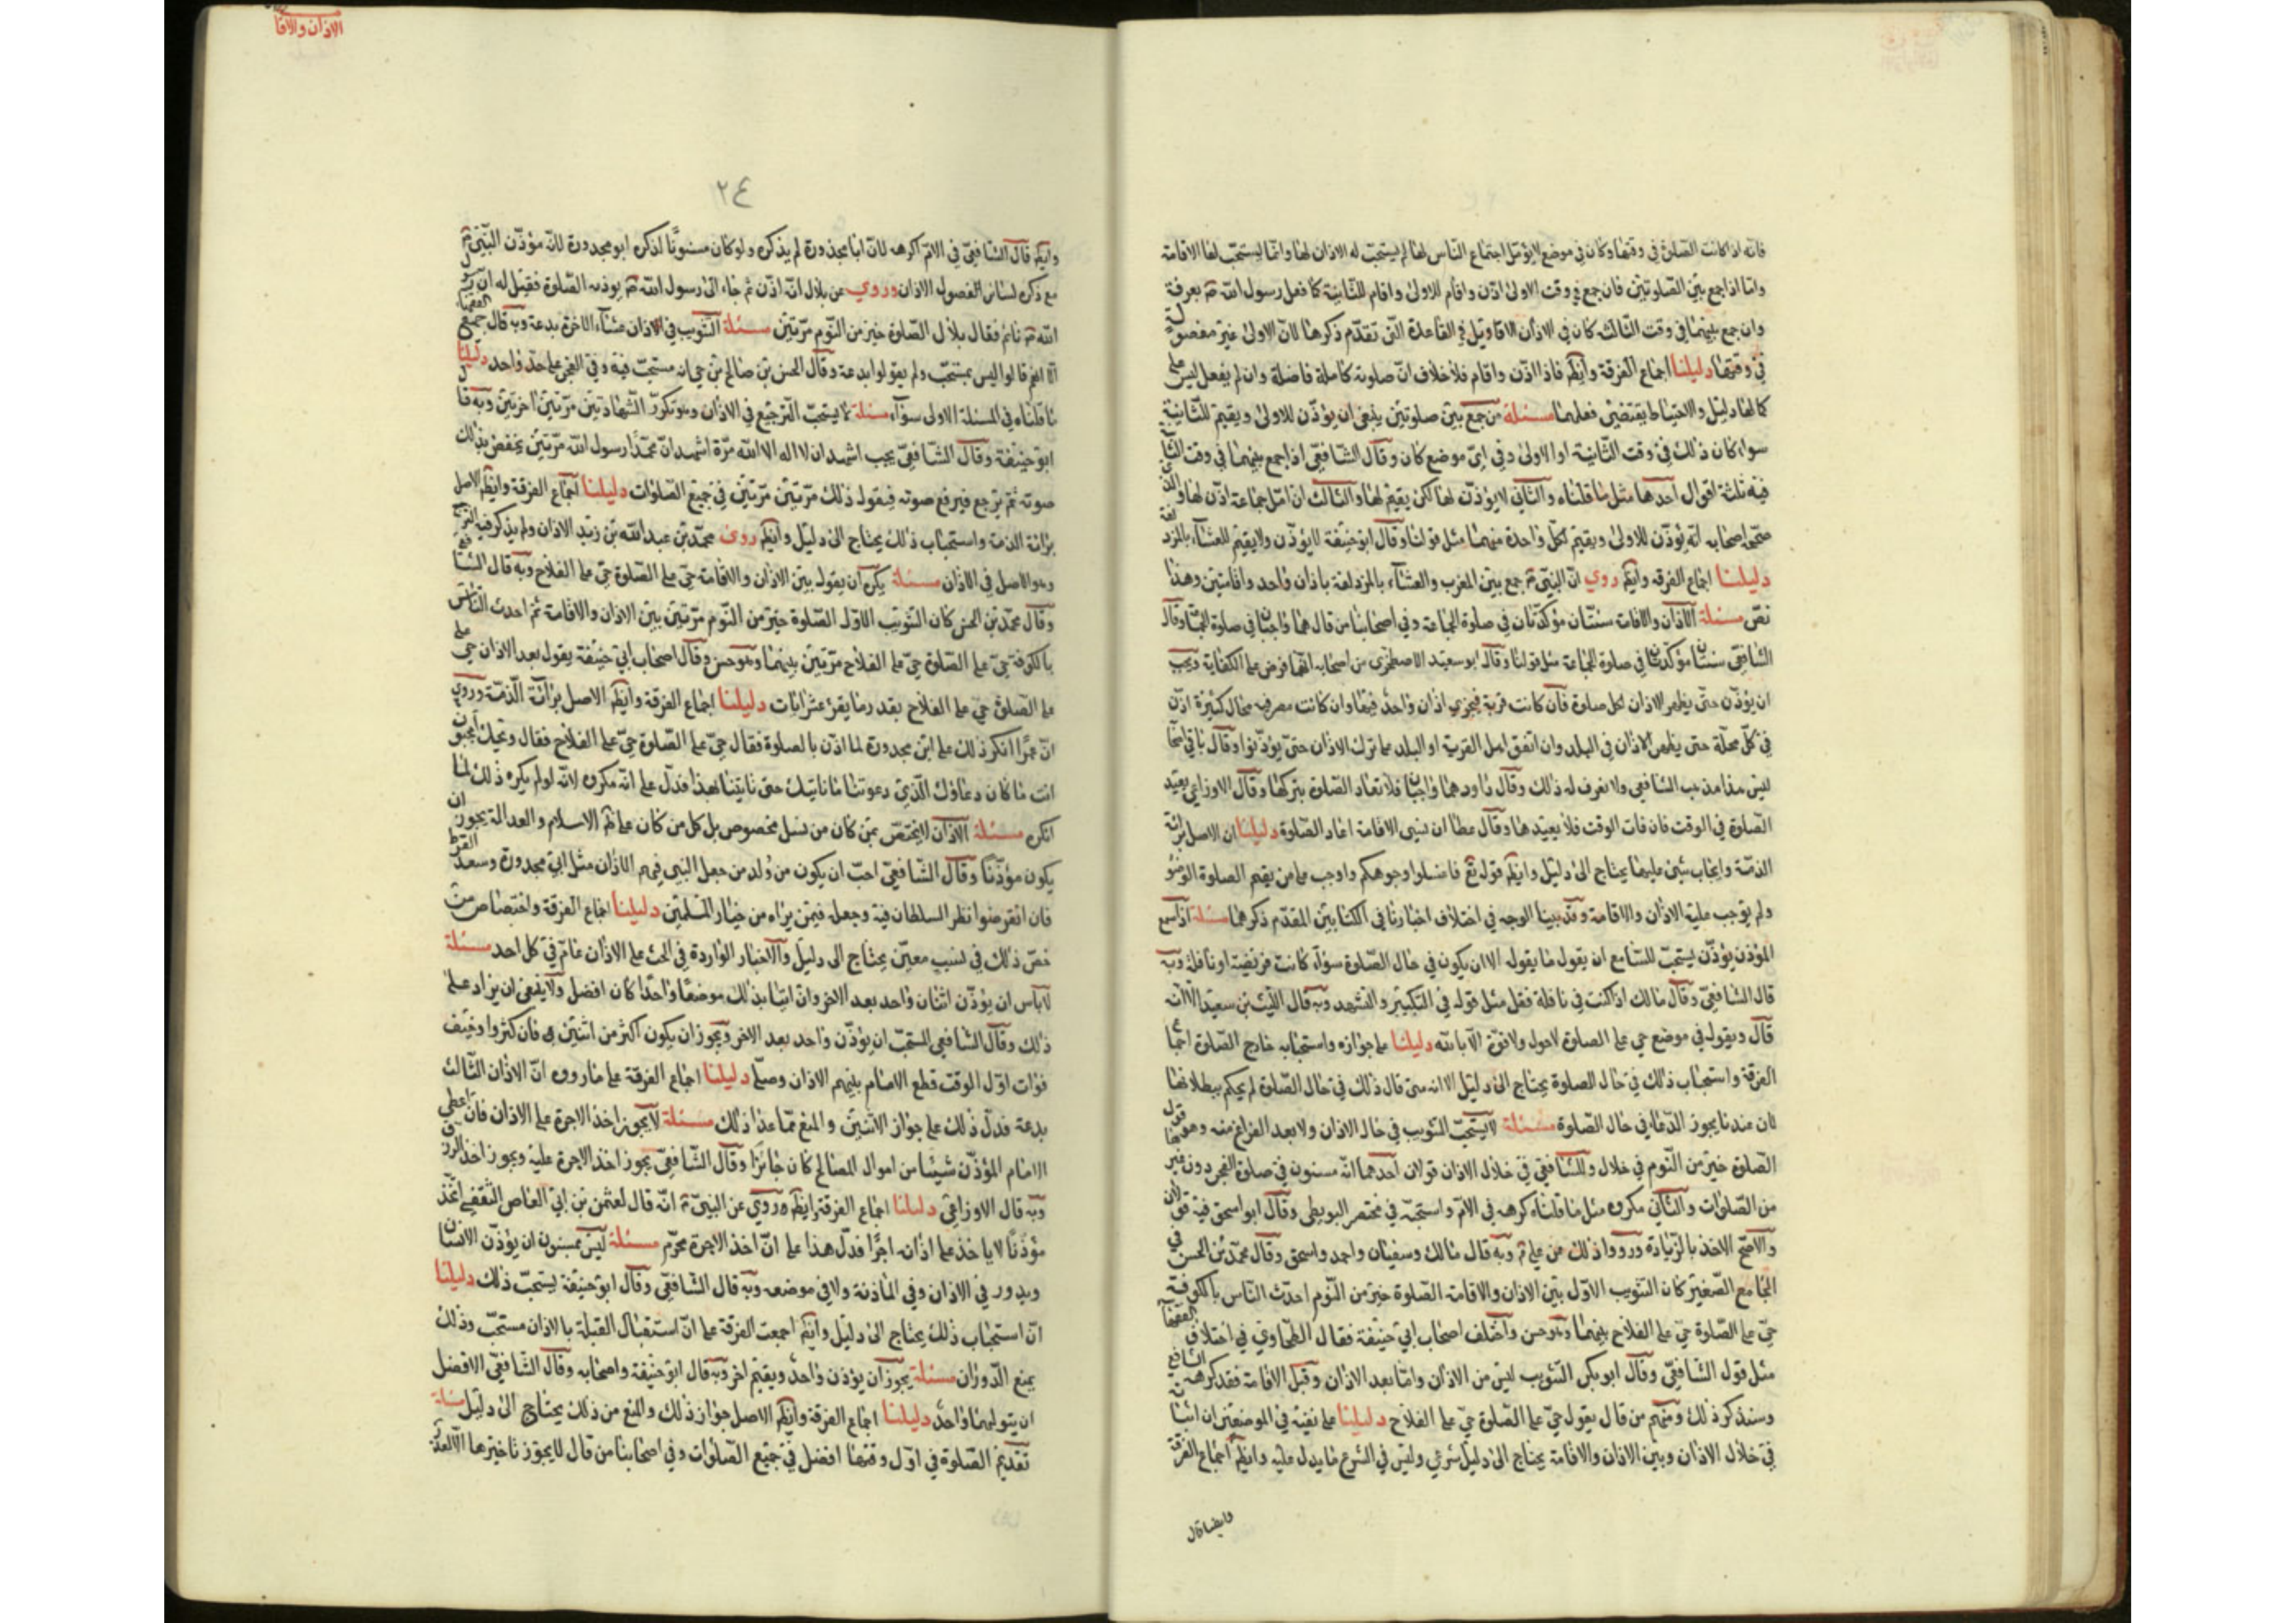 فانه اذا كانت الصلوة في وقتها وكان في موضع لا يؤمل اجتماع الناس لها لم يستحب له الاذان لها وانما يستحب لها الاقامة
واما اذا جمع بين الصلوتين فان جمع في وقت الاولى اذن واقام للاولى واقام للثانية كما فعل رسول الله ص بعرفة
وان جمع بينهما في وقت الثالث كان في الاذان الاقاويل في القاعدة التي تقدم ذكرها لان الاولى غير مفصولة
في وقتها دليلنا اجماع الفرقة وايضا فاذا اذن واقام فلا خلاف ان صلوته كاملة فاضلة وان لم يفعل ليس على
كمالها دليل والاحتياط يقتضي فعلهما مسئلة من جمع بين صلوتين ينبغي ان يؤذن للاولى ويقيم للثانية
سواء كان ذلك في وقت الثانية او الاولى وفي اي موضع كان وقال الشافعي اذا جمع بينهما في وقت الثانية
فيه ثلثة اقوال احدها مثل ما قلناه والثاني لا يؤذن لها لكن يقيم لها والثالث ان امل جماعة اذن لها والذي
صححه اصحابه انه يؤذن للاولى ويقيم لكل واحدة منهما مثل قولنا وقال ابو حنيفة لا يؤذن ولا يقيم للعشاء بالمزدلفة
دليلنا اجماع الفرقه وايضا روي ان النبي ص جمع بين المغرب والعشاء بالمزدلفة باذان واحد واقامتين وهذا
نص مسئلة الاذان والاقامة سنتان مؤكدتان في صلوة الجماعة وفي اصحابنا من قال هما واجبتان في صلوة الجماعة وقال
الشافعي سنتان مؤكدتان في صلوة الجماعة مثل قولنا وقال ابو سعيد الاصطخري من اصحابه انهما فرض على الكفاية ويجب
ان يؤذن حتى يظهر الاذان لكل صلوة فان كانت قرية فيجزي اذان واحد فيها وان كانت مصرا فيه محال كثيرة اذن
في كل محلة حتى يظهر الاذان في البلد وان اتفق اهل القرية او البلد على ترك الاذان حتى يؤذنوا وقال باقي اصحابه
ليس هذا مذهب الشافعي ولا نعرف له ذلك وقال داود هما واجبان فلا تعاد الصلوة بتركها وقال الاوزاعي يعيد
الصلوة في الوقت فان فات الوقت فلا يعيدها وقال عطا ان نسي الاقامة اعاد الصلوة دليلنا ان الاصل براءة
الذمة وايجاب شيئ عليها يحتاج الى دليل وايضا قوله تع فاغسلوا وجوهكم واوجب على من يقيم الصلوة الوضوء
ولم يوجب عليه الاذان والاقامة وقد بينا الوجه في اختلاف اخبارنا في الكتابين المقدم ذكرهما مسئلة اذا سمع
المؤذن يؤذن يستحب للسامع ان يقول ما يقوله الا ان يكون في حال الصلوة سواء كانت فريضة او نافلة وبه
قال الشافعي وقال مالك اذا كنت في نافلة فقل مثل قوله في التكبير والتشهد وبه قال الليث بن سعد الا انه
قال ويقول في موضع حي على الصلوة لا حول ولا قوة الا بالله دليلنا على جوازه واستحبابه خارج الصلوة اجماع
الفرقة واستحباب ذلك في حال الصلوة يحتاج الى دليل الا انه متى قال ذلك في حال الصلوة لم يحكم ببطلانها
لان عندنا يجوز الدعاء في حال الصلوة مسئلة لا يستحب التثويب في حال الاذان ولا بعد الفراغ منه وهو قول
الصلوة خير من النوم في خلال وللشافعي في خلال الاذان قولان احدهما انه مسنون في صلوة الفجر دون غيرها
من الصلوات والثاني مكروه مثل ما قلناه كرهه في الام واستحبه في مختصر البويطي وقال ابو اسحق فيه قولان
والاصح الاخذ بالزيادة ورووا ذلك عن علي ع وبه قال مالك وسفيان واحمد واسحق وقال محمد بن الحسن في
الجامع الصغير كان التثويب الاول بين الاذان والاقامة الصلوة خير من النوم احدث الناس بالكوفة
حي على الصلوة حي على الفلاح بينهما وهو حسن واختلف اصحاب ابي حنيفة فقال الطحاوي في اختلاف الفقهاء
مثل قول الشافعي وقال ابو بكر التثويب ليس من الاذان واما بعد الاذان وقبل الاقامة فقد كرهه الشافعي
وسنذكر ذلك ومنهم من قال يقول حي على الصلوة حي على الفلاح دليلنا على نفيه في الموضعين ان اثباته
في خلال الاذان وبين الاذان والاقامة يحتاج الى دليل شرعي وليس في الشرع ما يدل عليه وايضا اجماع الفرقة
وايضا قال
الاذان والاقا
٢٤
وايضا قال الشافعي في الام اكرهه لان ابا محذورة لم يذكره ولو كان مسنونا لذكره ابو محذورة لانه مؤذن النبي ص
مع ذكره لسائر الفصول الاذان وروي عن بلال انه اذن ثم جاء الى رسول الله ص يوذنه الصلوة فقيل له ان رسول
الله ص نائم فقال بلال الصلوة خير من النوم مرتين مسئلة التثويب في اذان عشاء الاخرة بدعة وبه قال جميع الفقهاء
الا انهم قالوا ليس بمستحب ولم يقولوا بدعة وقال الحسن بن صالح بن حي انه مستحب فيه وفي الفجر على حد واحد دليلنا
ما قلناه في المسئلة الاولى سواء مسئلة لا يستحب الترجيع في الاذان وهو تكرر الشهادتين مرتين اخرتين وبه قال
ابو حنيفة وقال الشافعي يجب اشهد ان لا اله الا الله مرة اشهد ان محمدا رسول الله مرتين يخفض بذلك
صوته ثم يرجع فيرفع صوته فيقول ذلك مرتين مرتين في جميع الصلوات دليلنا اجماع الفرقة وايضا الاصل
براءة الذمة واستحباب ذلك يحتاج الى دليل وايضا روى محمد بن عبد الله بن زيد الاذان ولم يذكر فيه الترجيع
وهو الاصل في الاذان مسئلة يكره ان يقول بين الاذان والاقامة حي على الصلوة حي على الفلاح وبه قال الشافعي
وقال محمد بن الحسن كان التثويب الاول الصلوة خير من النوم مرتين بين الاذان والاقامة ثم احدث الناس
بالكوفة حي على الصلوة حي على الفلاح مرتين بينهما وهو حسن وقال اصحاب ابي حنيفة يقول بعد الاذان حي على
على الصلوة حي على الفلاح بقدر ما يقرء عشر ايات دليلنا اجماع الفرقة وايضا الاصل براءة الذمة وروي
ان عمرا انكر ذلك على ابن محذورة لما اذن بالصلوة فقال حي على الصلوة حي على الفلاح فقال ويحك امجنون
انت ما كان دعاؤك الذي دعوتنا ما ناتيك حتى تاتينا بهذا فدل على انه مكروه لانه لو لم يكره ذلك لما
انكره مسئلة الاذان لا يختص بمن كان من نسل مخصوص بل كل من كان على ظاهر الاسلام والعدالة يجوز ان
يكون مؤذنا وقال الشافعي احب ان يكون من ولد من جعل النبي فيهم الاذان مثل ابي محذورة وسعد القرط
فان انقرضوا نظر السلطان فيه وجعل فيمن يراه من خيار المسلمين دليلنا اجماع الفرقة واختصاص من
خص ذلك في نسب معين يحتاج الى دليل والاخبار الواردة في الحث على الاذان عام في كل احد مسئلة
لا باس ان يؤذن اثنان واحد بعد الاخر وان اتيا بذلك موضعا واحدا كان افضل ولا ينبغي ان يزاد على
ذلك وقال الشافعي المستحب ان يؤذن واحد بعد الاخر ويجوز ان يكون اكثر من اثنين فان كثروا وخيف
فوات اول الوقت قطع الامام بينهم الاذان وصلى دليلنا اجماع الفرقة على ما رووه ان الاذان الثالث
بدعة فدل ذلك على جواز الاثنين والمنع عما عدا ذلك مسئلة لا يجوز اخذ الاجرة على الاذان فان اعطى
الامام المؤذن شيئا من اموال المصالح كان جائزا وقال الشافعي يجوز اخذ الاجرة عليه ويجوز اخذ الرزق
وبه قال الاوزاعي دليلنا اجماع الفرقة وايضا وروي عن النبي ص انه قال لعثمن بن ابي العاص الثقفي اتخذ
مؤذنا لا ياخذ على اذانه اجرا فدل هذا على ان اخذ الاجرة محرم مسئلة ليس بمسنون ان يؤذن الانسان
ويدور في الاذان وفي الماذنة ولا في موضعه وبه قال الشافعي وقال ابو حنيفة يستحب ذلك دليلنا
ان استحباب ذلك يحتاج الى دليل وايضا اجمعت الفرقة على ان استقبال القبلة بالاذان مستحب وذلك
يمنع الدوران مسئلة يجوز ان يؤذن واحد ويقيم اخر وبه قال ابو حنيفة واصحابه وقال الشافعي الافضل
ان يتولهما واحد دليلنا اجماع الفرقة وايضا الاصل جواز ذلك والمنع من ذلك يحتاج الى دليل مسئلة
تقديم الصلوة في اول وقتها افضل في جميع الصلوات وفي اصحابنا من قال لا يجوز تاخيرها الا لعذر